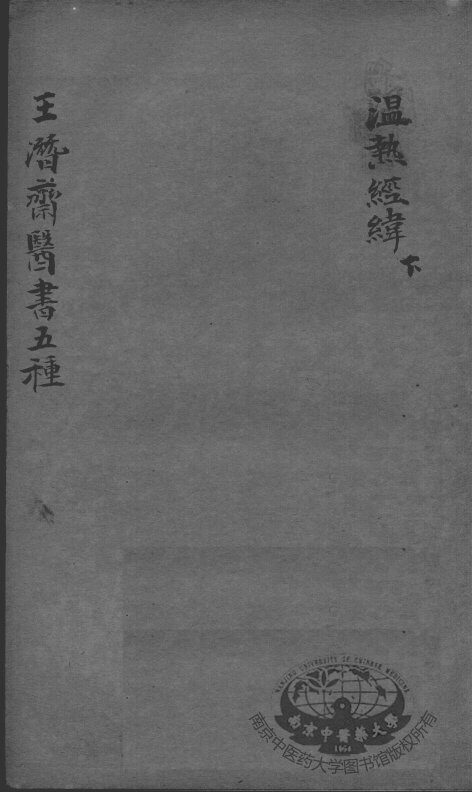 温熱經緯 下
王潛齋醫書五種
NANJING UNIVERSITY OF CHINESE MEDICINE
南京中醫藥大學
1954
南京中医药大学图书馆版权所有